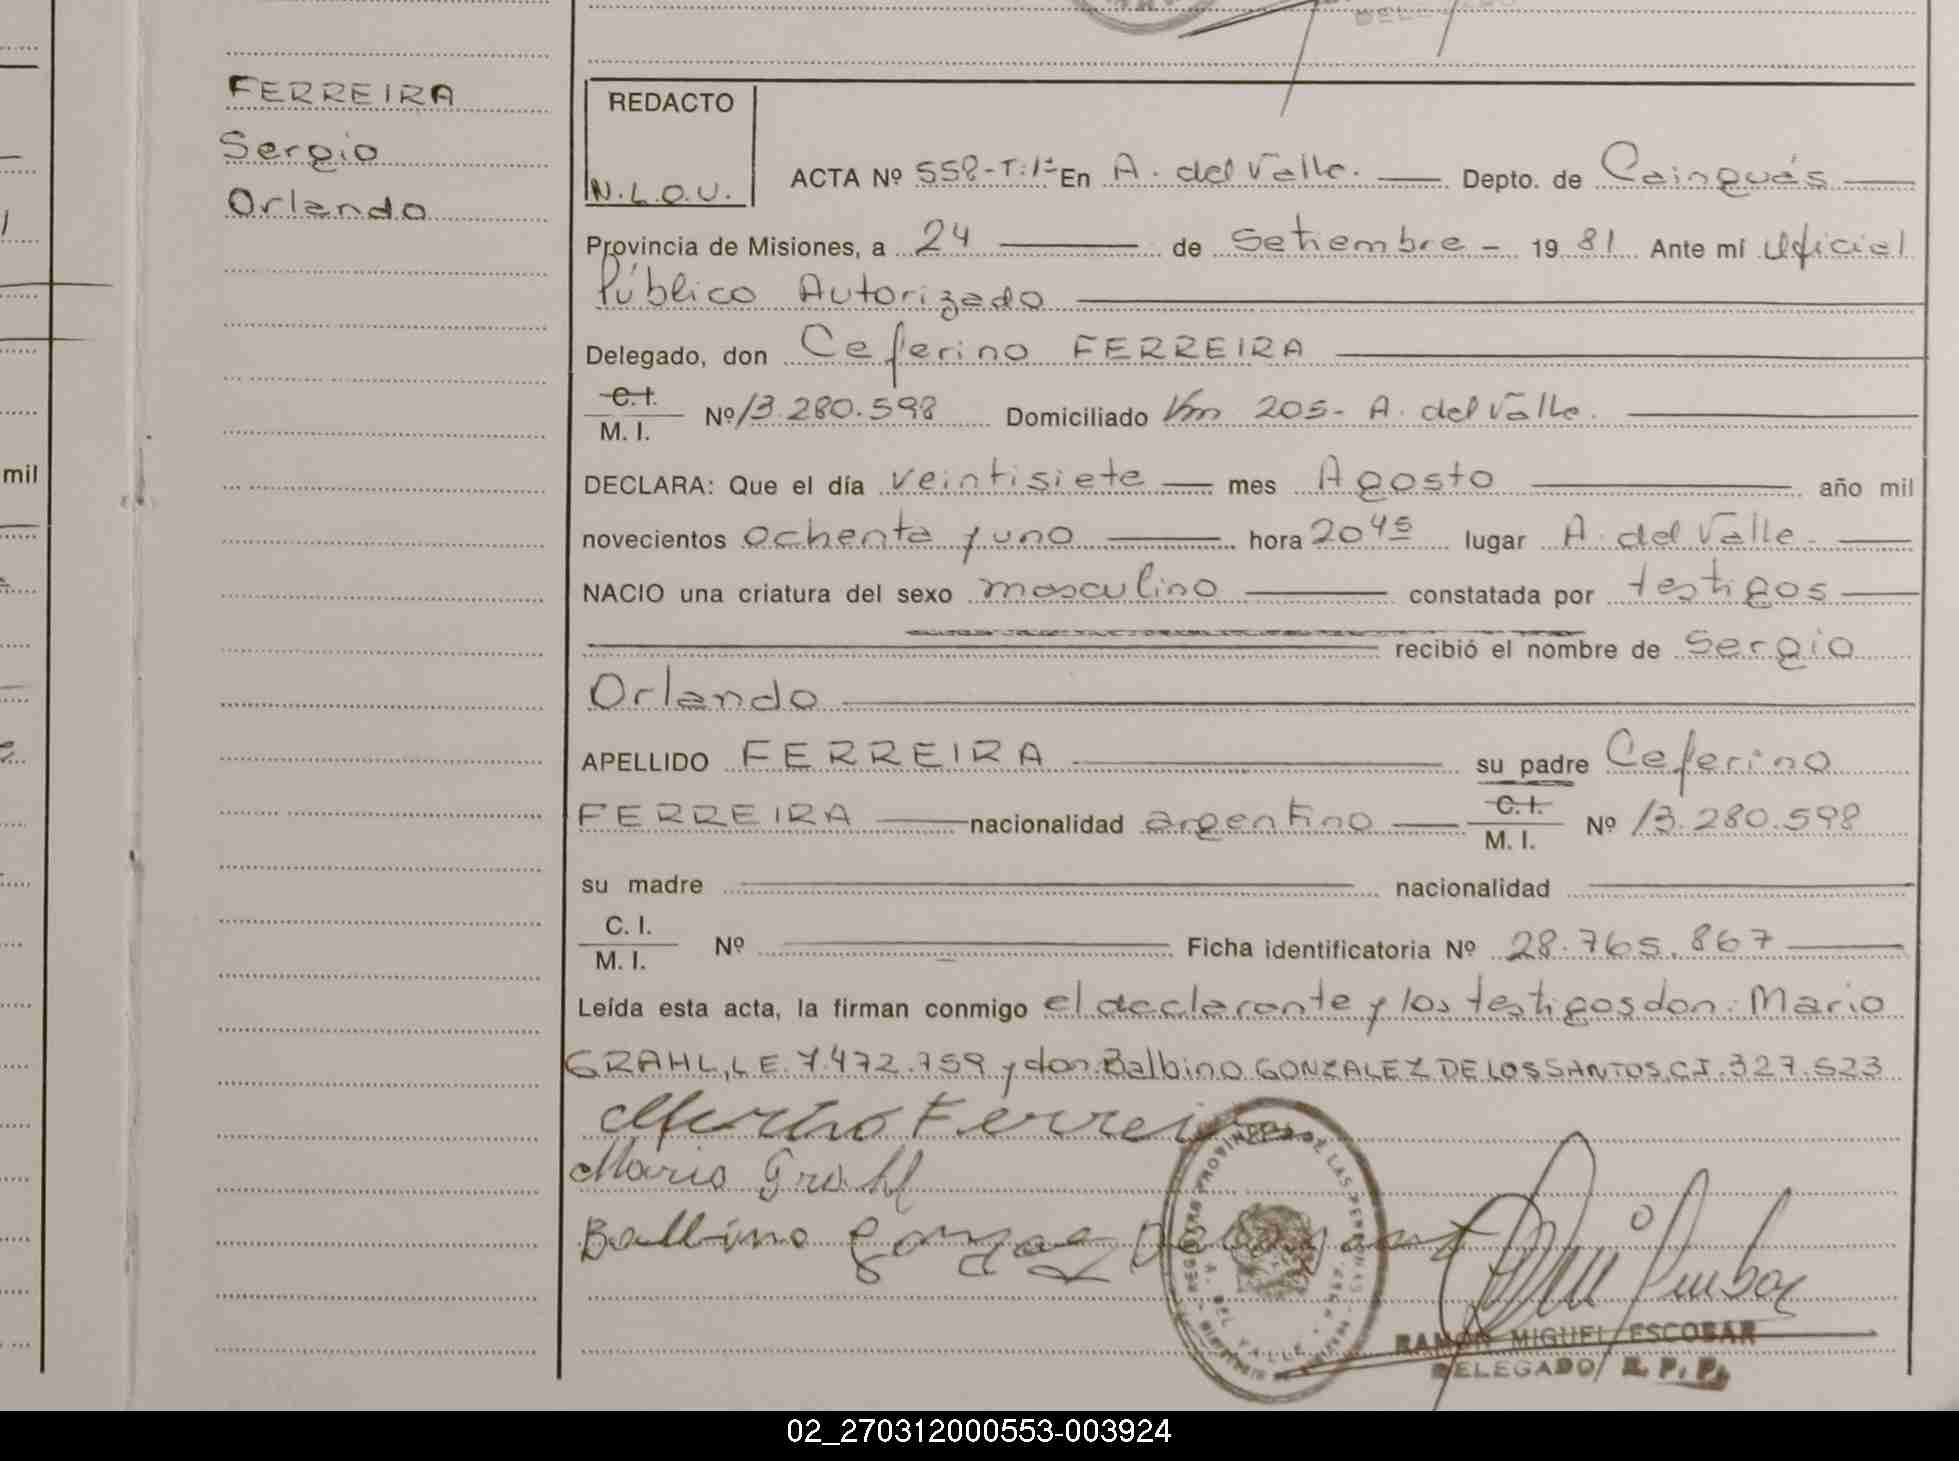 FERREIRA
Sergio
Orlando
mil
REDACTO
N.L.O.U.
ACTA Nº 558-T:1º En A. del Valle. Depto. de Cainguás
Provincia de Misiones, a 24 de Setiembre - 19 81 Ante mí Oficial
Público Autorizado
Delegado, don Ceferino FERREIRA
C.I.
M. I. Nº 13.280.598 Domiciliado Km 205- A. del Valle.
DECLARA: Que el día veintisiete mes Agosto año mil
novecientos ochenta y uno hora 20 45 lugar A. del Valle.
NACIO una criatura del sexo masculino constatada por testigos
recibió el nombre de Sergio
Orlando
APELLIDO FERREIRA su padre Ceferino
FERREIRA nacionalidad argentino C.I.
M. I. Nº 13.280.598
su madre nacionalidad
C. I.
M. I. Nº Ficha identificatoria Nº 28.765.867
Leída esta acta, la firman conmigo el declarante y los testigos don: Mario
GRAHL, L E. 7.472.759 y don Balbino GONZALEZ DE LOS SANTOS, C.I. 327.523
Ceferino Ferreira
Mario Grahl
Balbino
REGISTRO PROVINCIAL DE LAS PERSONAS
A. DEL VALLE
RAMON MIGUEL ESCOBAR
DELEGADO R. P. P.
02_270312000553-003924